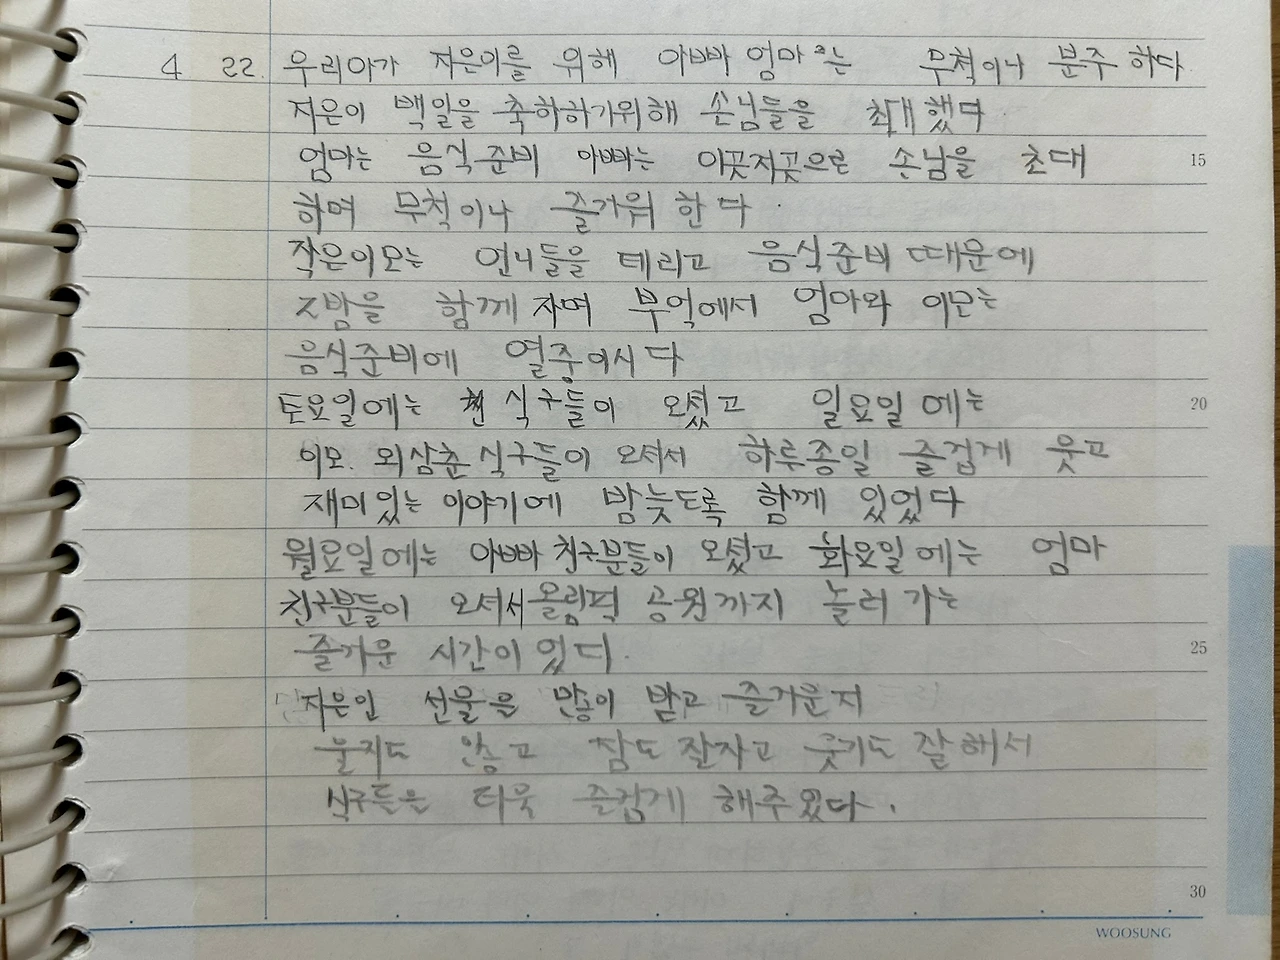 4 22. 우리아가 지은이를 위해 아빠 엄마는 무척이나 분주 하다
지은이 백일을 축하하기위해 손님들을 초대했다
엄마는 음식준비 아빠는 이곳저곳으로 손님을 초대 15
하며 무척이나 즐거워 한다.
작은이모는 언니들을 데리고 음식준비 때문에
2밤을 함께 자며 부엌에서 엄마와 이모는
음식준비에 열중이시다
토요일에는 친식구들이 오셨고 일요일에는 20
이모. 외삼춘식구들이 오셔서 하루종일 즐겁게 웃고
재미있는 이야기에 밤늦도록 함께 있었다
월요일에는 아빠친구분들이 오셨고 화요일에는 엄마
친구분들이 오셔서올림픽 공원까지 놀러 가는
즐거운 시간이 었다. 25
지은인 선물을 많이 받고 즐거운지
울지도 않고 잠도 잘자고 웃기도 잘해서
식구들을 더욱 즐겁게 해주었다.
30
WOOSUNG